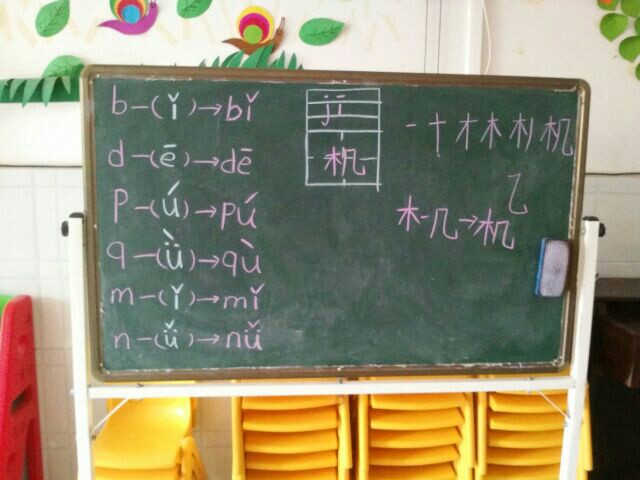 b-(ǐ)→bǐ
d-(ē)→dē
p-(ú)→pú
q-(ǜ)→qù
m-(ǐ)→mǐ
n-(ǚ)→nǚ
jī
机
一十才木朳机
乙
木-几→机